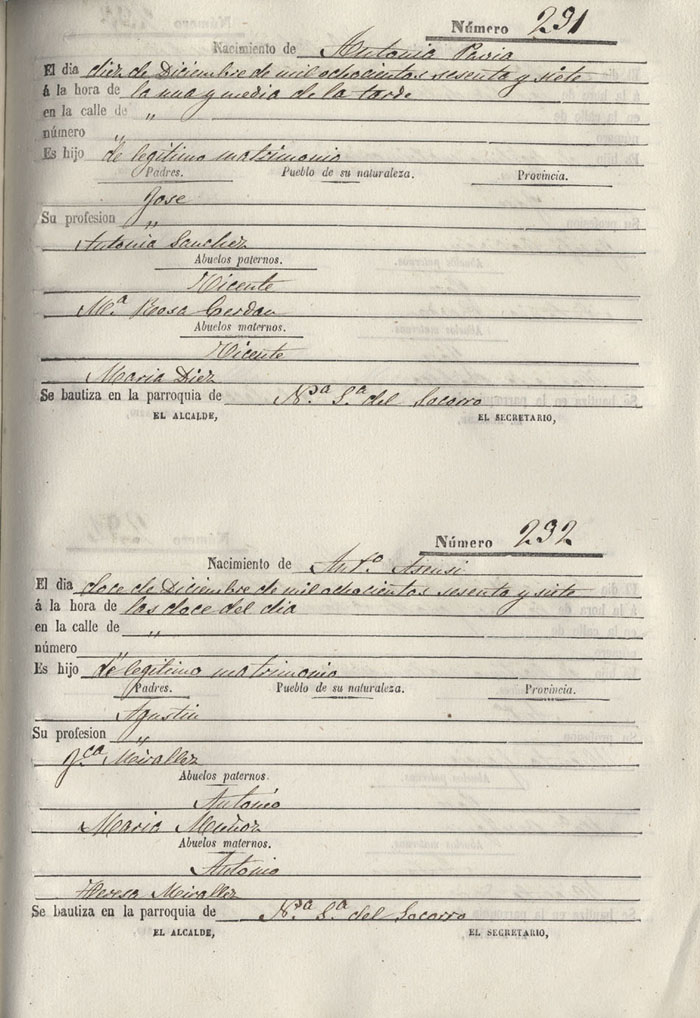 Número 231
Nacimiento de Antonia Pavia
El dia diez de Diciembre de mil ochocientos sesenta y siete
á la hora de la una y media de la tarde
en la calle de "
número "
Es hijo de legitimo matrimonio
Padres. Pueblo de su naturaleza. Provincia.
Jose
Su profesion "
Antonia Sanchez
Abuelos paternos.
Vicente
M.ª Rosa Cerdan
Abuelos maternos.
Vicente
Maria Diez
Se bautiza en la parroquia de N.ª S.ª del Socorro
EL ALCALDE, EL SECRETARIO,
Número 232
Nacimiento de Ant.º Asensi
El dia doce de Diciembre de mil ochocientos sesenta y siete
á la hora de las doce del dia
en la calle de "
número "
Es hijo de legitimo matrimonio
Padres. Pueblo de su naturaleza. Provincia.
Agustin
Su profesion "
Fca Mirallez
Abuelos paternos.
Antonio
Maria Muñoz
Abuelos maternos.
Antonio
Theresa Mirallez
Se bautiza en la parroquia de N.ª S.ª del Socorro
EL ALCALDE, EL SECRETARIO,